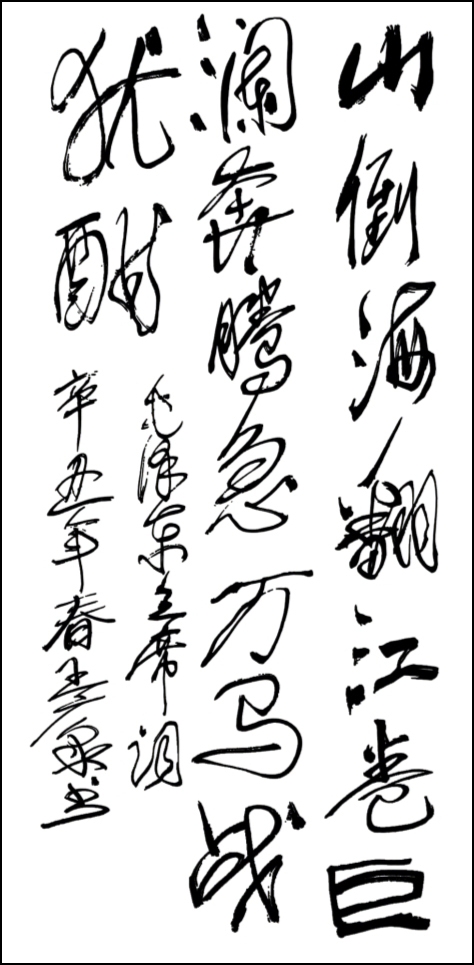 山倒海翻江卷巨
澜奔腾急万马战
犹酣
毛泽东主席词
辛丑年春书